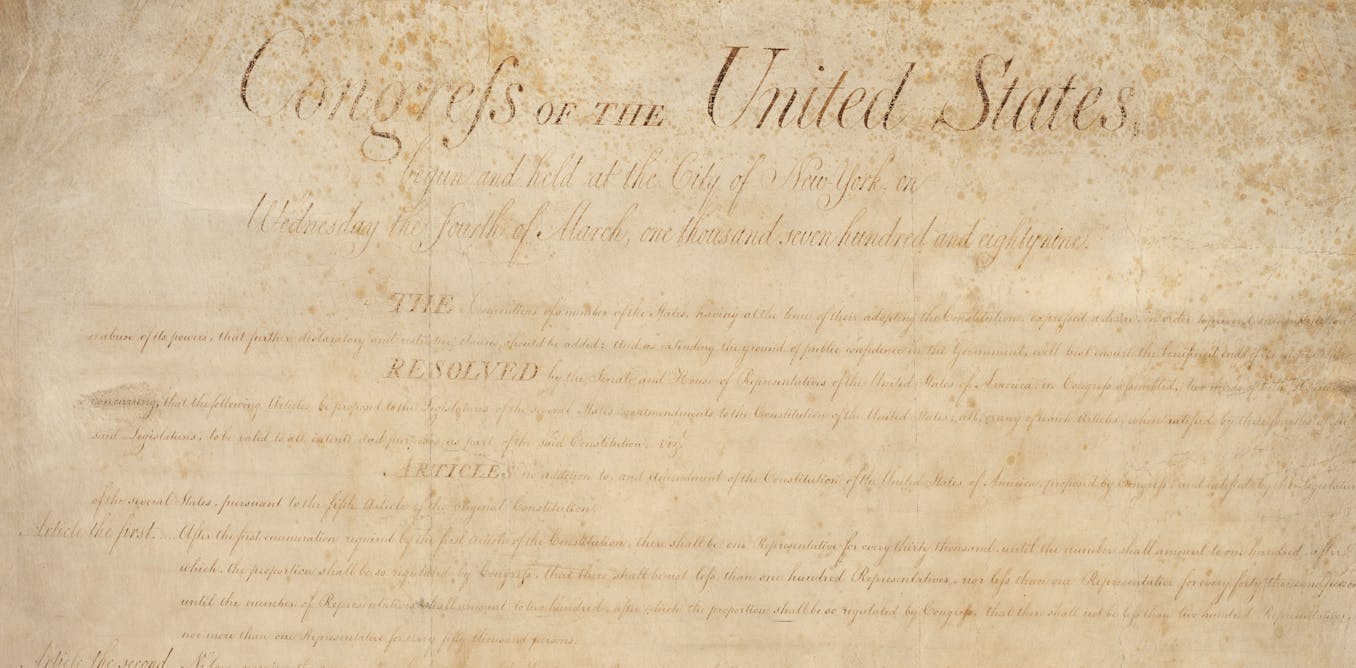 Congreſs OF THE United States,
begun and held at the City of New York, on
Wednesday the fourth of March, one thousand seven hundred and eighty nine.
THE Conventions of a number of the States, having at the time of their adopting the Constitution, expressed a desire, in order to prevent misconstruction
or abuse of its powers, that further declaratory and restrictive clauses should be added: And as extending the ground of public confidence in the Government, will best ensure the beneficent ends of its
RESOLVED by the Senate and House of Representatives of the United States of America, in Congress assembled, two thirds of both Houses
concurring, that the following Articles be proposed to the Legislatures of the several States, as amendments to the Constitution of the United States, all, or any of which Articles, when ratified by three fourths of the
said Legislatures, to be valid to all intents and purposes, as part of the said Constitution. viz.
ARTICLES in addition to, and amendment of the Constitution of the United States of America, proposed by Congress and ratified by the Legislatures
of the several States, pursuant to the fifth Article of the original Constitution.
Article the first.... After the first enumeration required by the first article of the Constitution, there shall be one Representative for every thirty thousand, until the number shall amount to one hundred, after
which, the proportion shall be so regulated by Congreſs, that there shall be not leſs than one hundred Representatives, nor leſs than one Representative for every forty thousand persons,
until the number of Representatives shall amount to two hundred, after which the proportion shall be so regulated by Congreſs, that there shall not be leſs than two hundred Representatives,
nor more than one Representative for every fifty thousand persons.
Article the second